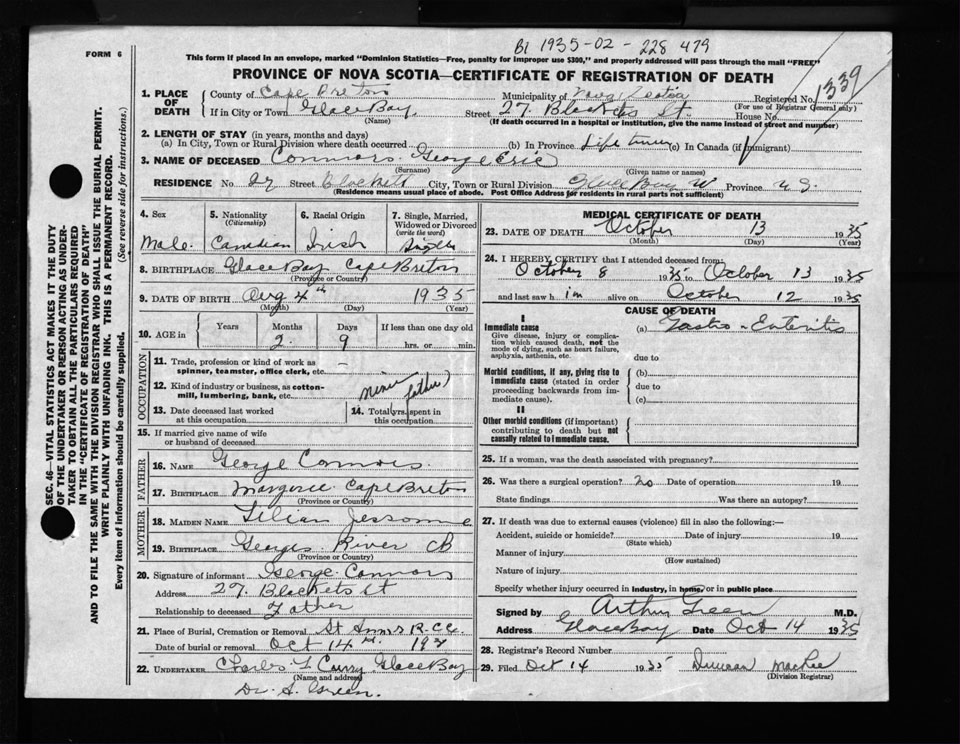 B1 1935-02-228 479
FORM 6
This form if placed in an envelope, marked "Dominion Statistics—Free, penalty for improper use $300," and properly addressed will pass through the mail "FREE"
PROVINCE OF NOVA SCOTIA—CERTIFICATE OF REGISTRATION OF DEATH
SEC. 46—VITAL STATISTICS ACT MAKES IT THE DUTY
OF THE UNDERTAKER OR PERSON ACTING AS UNDER-
TAKER TO OBTAIN ALL THE PARTICULARS REQUIRED
IN THE "CERTIFICATE OF REGISTRATION OF DEATH"
AND TO FILE THE SAME WITH THE DIVISION REGISTRAR WHO SHALL ISSUE THE BURIAL PERMIT.
WRITE PLAINLY WITH UNFADING INK. THIS IS A PERMANENT RECORD.
Every item of information should be carefully supplied. (See reverse side for instructions.)
1. PLACE OF DEATH
County of Cape Breton Municipality of Registered No. 1339
(For use of Registrar General only)
If in City or Town Glace Bay Street 27 St. House No.
(Name) (If death occurred in a hospital or institution, give the name instead of street and number)
2. LENGTH OF STAY (in years, months and days)
(a) In City, Town or Rural Division where death occurred (b) In Province Life time (c) In Canada (if immigrant)
3. NAME OF DECEASED Connors George Eric
(Surname) (Given name or names)
RESIDENCE No. 27 Street Blackett City, Town or Rural Division Glace Bay Province N.S.
(Residence means usual place of abode. Post Office Address for residents in rural parts not sufficient)
4. Sex
Male.
5. Nationality
(Citizenship)
Canadian
6. Racial Origin
Irish
7. Single, Married,
Widowed or Divorced
(write the word)
Single
8. BIRTHPLACE Glace Bay Cape Breton
(Province or Country)
9. DATE OF BIRTH Aug 4th 1935
(Month) (Day) (Year)
10. AGE in
Years
Months
2.
Days
9
If less than one day old
hrs. or min.
OCCUPATION
11. Trade, profession or kind of work as
spinner, teamster, office clerk, etc. —
12. Kind of industry or business, as cotton-
mill, lumbering, bank, etc.
miner
father)
13. Date deceased last worked
at this occupation
14. Total yrs. spent in
this occupation
15. If married give name of wife
or husband of deceased
FATHER
16. NAME George Connors.
17. BIRTHPLACE Margaree Cape Breton
(Province or Country)
MOTHER
18. MAIDEN NAME Lilian Jessome
19. BIRTHPLACE Georges River CB
(Province or Country)
20. Signature of informant George Connors
Address 27. Blacketts St
Relationship to deceased Father
21. Place of Burial, Cremation or Removal St Anns R.C.
Date of burial or removal Oct 14th. 193
22. UNDERTAKER Charles L Curry Glace Bay
(Name and address)
Dr. A. Green.
MEDICAL CERTIFICATE OF DEATH
23. DATE OF DEATH October 13 1935
(Month) (Day) (Year)
24. I HEREBY CERTIFY that I attended deceased from:
October 8 1935 to October 13 1935
and last saw h im alive on October 12 1935
CAUSE OF DEATH
I
Immediate cause
Give disease, injury or complica-
tion which caused death, not the
mode of dying, such as heart failure,
asphyxia, asthenia, etc.
(a) Gastro-Enteritis
due to
Morbid conditions, if any, giving rise to
immediate cause (stated in order
proceeding backwards from im-
mediate cause).
(b)
due to
(c)
II
Other morbid conditions (if important)
contributing to death but not
causally related to immediate cause.
25. If a woman, was the death associated with pregnancy?
26. Was there a surgical operation? No Date of operation 19
State findings Was there an autopsy?
27. If death was due to external causes (violence) fill in also the following:—
Accident, suicide or homicide? Date of injury 19
(State which)
Manner of injury
(How sustained)
Nature of injury
Specify whether injury occurred in industry, in home, or in public place
Signed by Arthur Green M.D.
Address Glace Bay Date Oct 14 1935
28. Registrar's Record Number
29. Filed Oct 14 1935 Duncan
(Division Registrar)